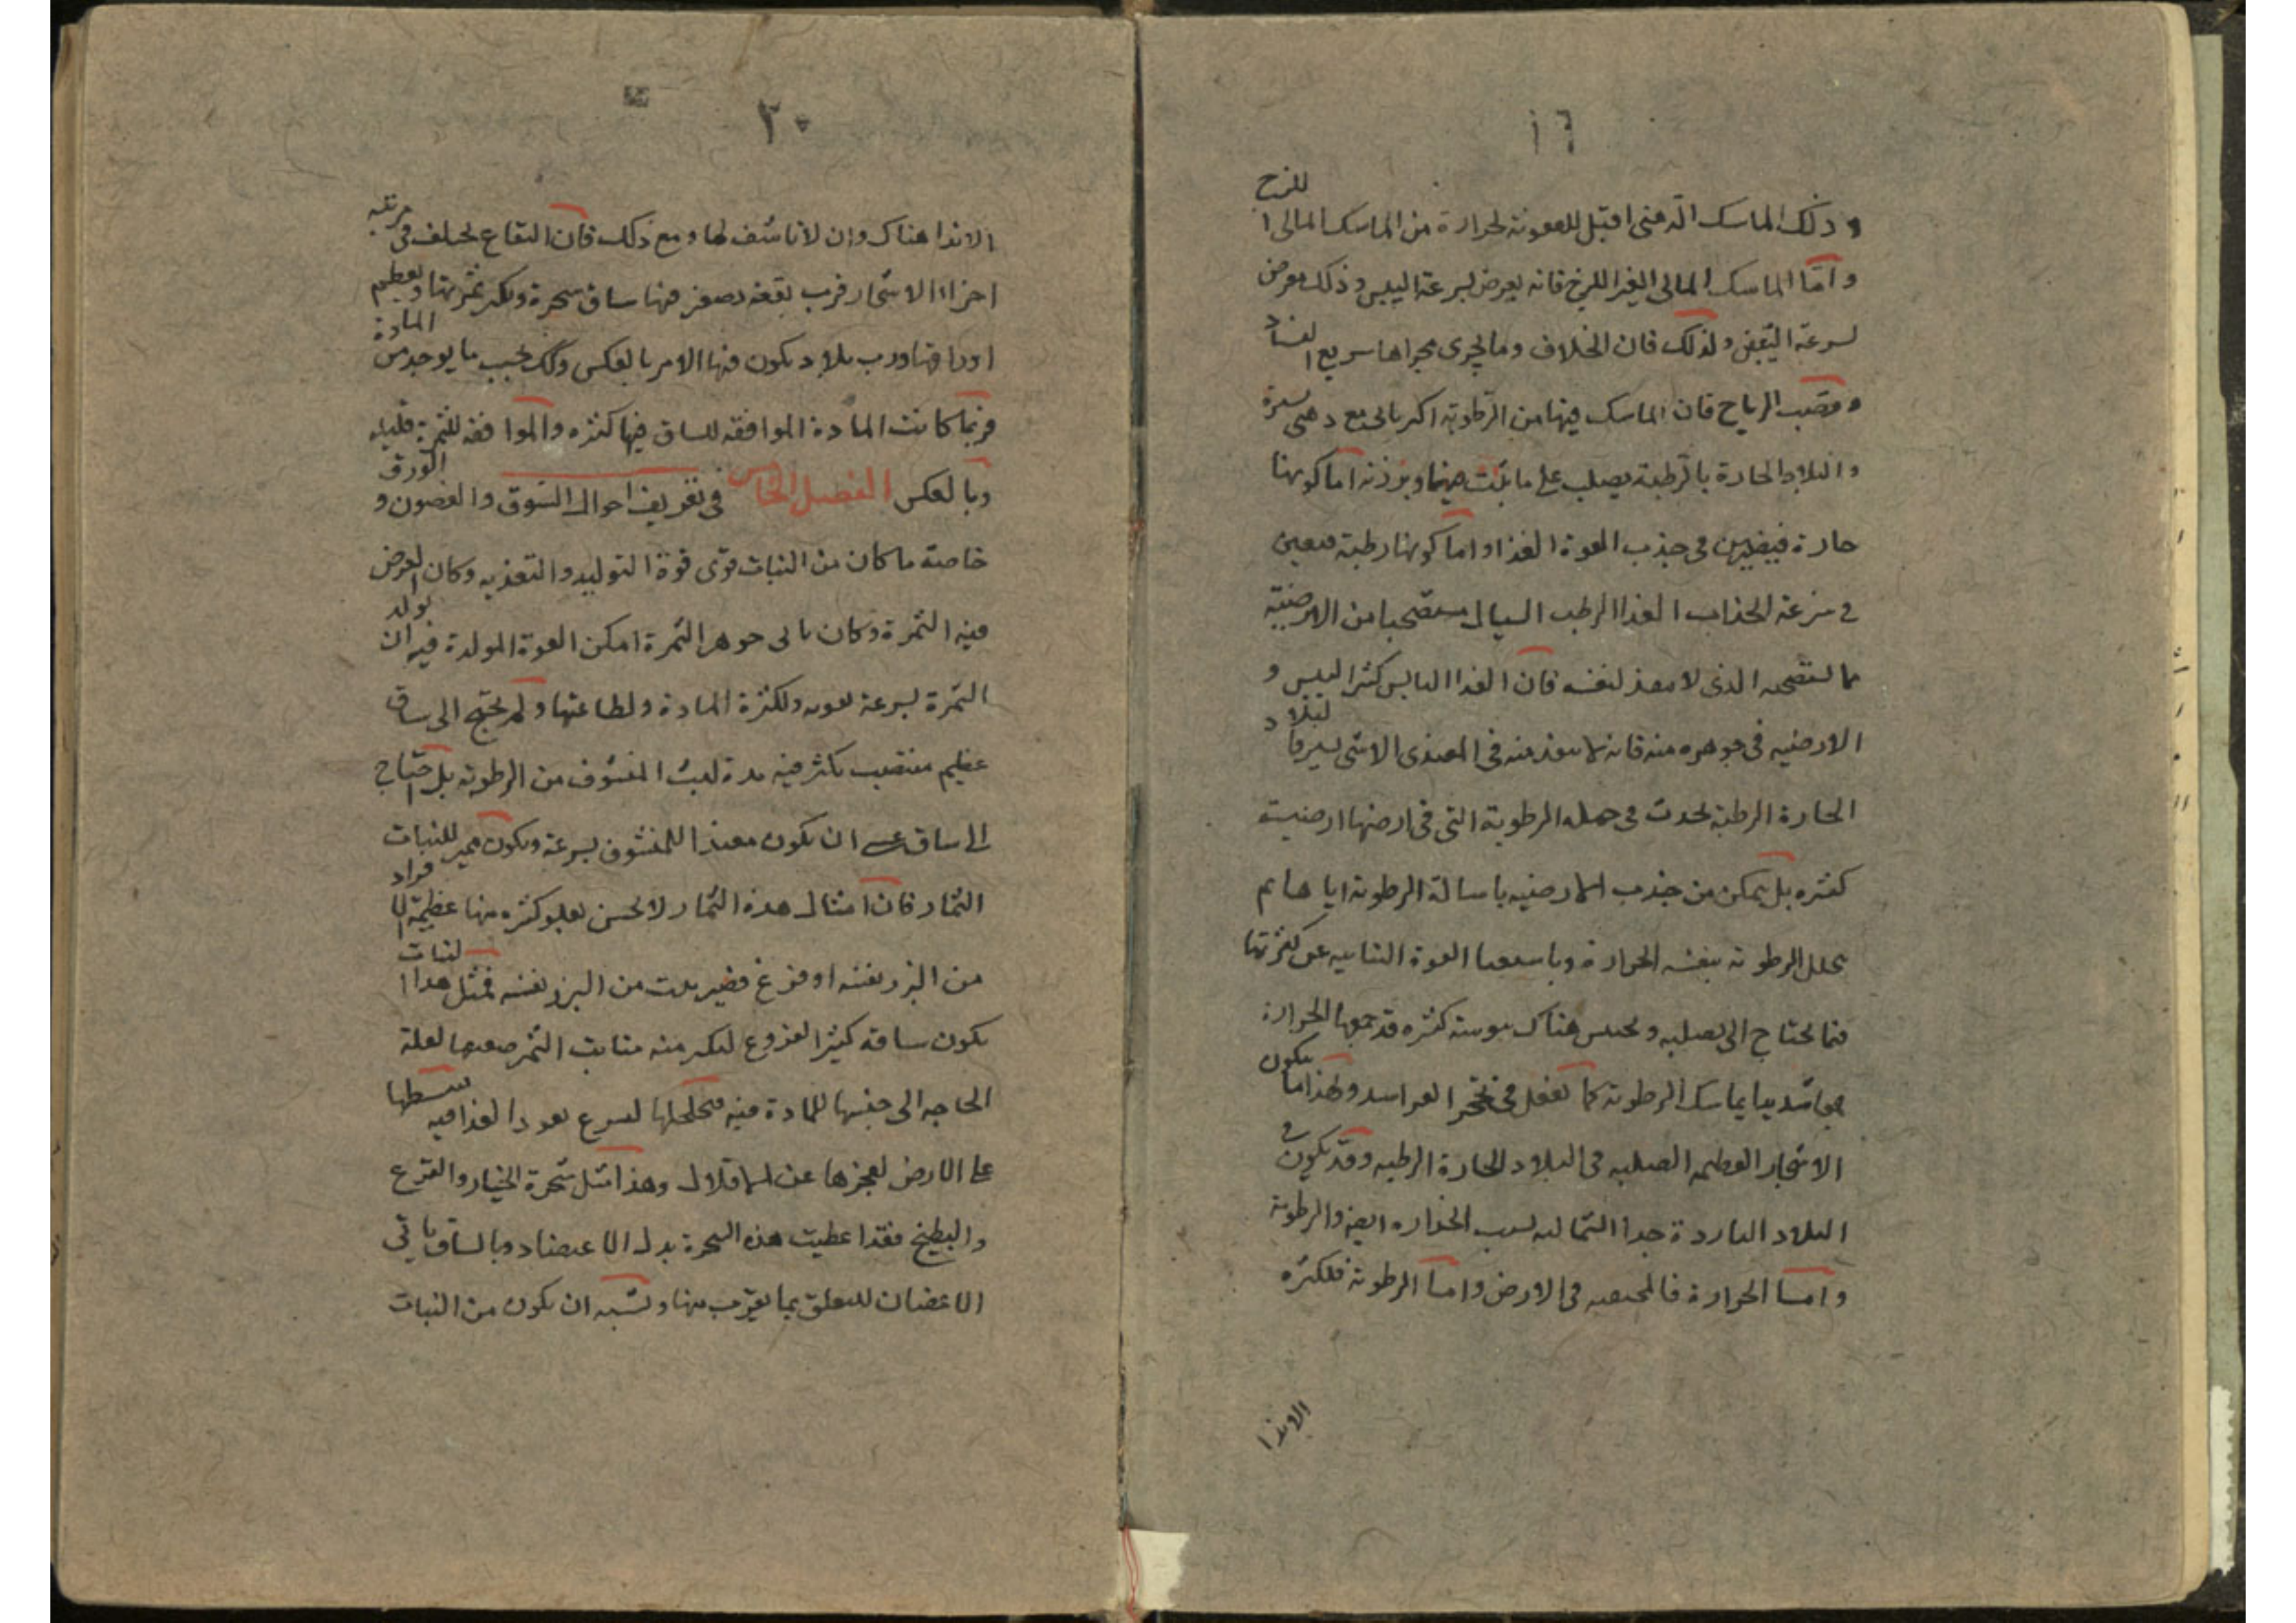 ١٦
وذلك الماسك الدهنى اقبل للعفونة لحرارة من الماسك المالى اللزج
واما الماسك المالى الغير اللزج فانه يعرض لسرعة اليبس وذلك معرض
لسرعة التعفن ولذلك فان الخلاف وما يجرى مجراها سريع الفساد
وقصب الرياح فان الماسك فيها من الرطوبة اكثر مائى مع دهنى يسيرة
والبلاد الحارة بالرطبة يصلب على ما نبت فيها اما كونها
حارة فيعين فى جذب القوة الغذا واما كونها رطبة فيعين
فى سرعة انجذاب الغذا الرطب السيال مستصحبا من الارضية
ما يستصحبه الذى لا ينفذ لنفسه فان الغذا اليابس كثير اليبس و
الارضيه فى جوهره منه فانه لا ينفذ منه فى المغتذى الا شى يسير فالبلاد
الحارة الرطبة تحدث فى جمله الرطوبة التى فى ارضها ارضيت
كثيره بل يمكن من جذب الارضيه باسالة الرطوبة اياها ثم
تحلل الرطوبة بنفسه الحرارة القوة النباتيه عن كثرتها
فيما يحتاج الى تصليبه ويحتبس هناك يبوسة كثيره قد جمعها الحرارة
جمعا شديدا بماسك الرطوبة كما تفعل فى ولهذا ما يكون
الاشجار العظيمه الصلبه فى البلاد الحارة الرطبه وقد يكون فى
البلاد الباردة جدا الشماليه لسبب الحراره ايضا والرطوبة
واما الحرارة فالمحتقنه فى الارض واما الرطوبة فلكثره
الاندا
٢٠
الاندا هناك وان لا ناشف لها ومع ذلك فان البقاع تختلف فى تربيه
اجزاء الاشجار فرب بقعه تصغر فيها ساق شجرة ويكبر ثمرتها ويعظم
اوراقها ورب بلاد يكون فيها الامر بالعكس وذلك بحسب ما يوجد من المادة
فربما كانت المادة الموافقه للساق فيها كثيره والموافقه للثمرة قليله
وبالعكس الفصل الخامس فى تعريف احوال السوق والغصون والورق
خاصة ما كان من النبات قوى قوة التوليد والتغذيه وكان الغرض
فيه الثمرة وكان مائى جوهر الثمرة امكن القوة المولدة فيه ان تولد
الثمرة بسرعة لقوته ولكثرة المادة ولطاعتها ولم يحتج الى ساق
عظيم منتصب يكثر فيه مدة لبث المنشوف من الرطوبة بل احتاج
الى ساق عسى ان يكون منفذا للمنشوف بسرعة ويكون للنبات
الثمار فان امثال هذه الثمار لا يحسن تعلق كثيره منها عظيمة الافراد
من البزر نفسه او فرع قصير نبت من البزر نفسه فمثل هذا النبات
يكون ساقه كثير الفروع ليكثر منه منابت الثمر ضعيفها لقلة
الحاجه الى حبسها للمادة فيه متخلخلها ليسرع نفوذ الغذا فيه ينبسطها
على الارض لعجزها عن الاقلال وهذا مثل شجرة الخيار والقرع
والبطيخ فقد اعطيت هذه الشجرة بدل الاعتضاد بالساق باقى
الاغصان للتعلق بما يقرب منها ويشبه ان يكون من النبات